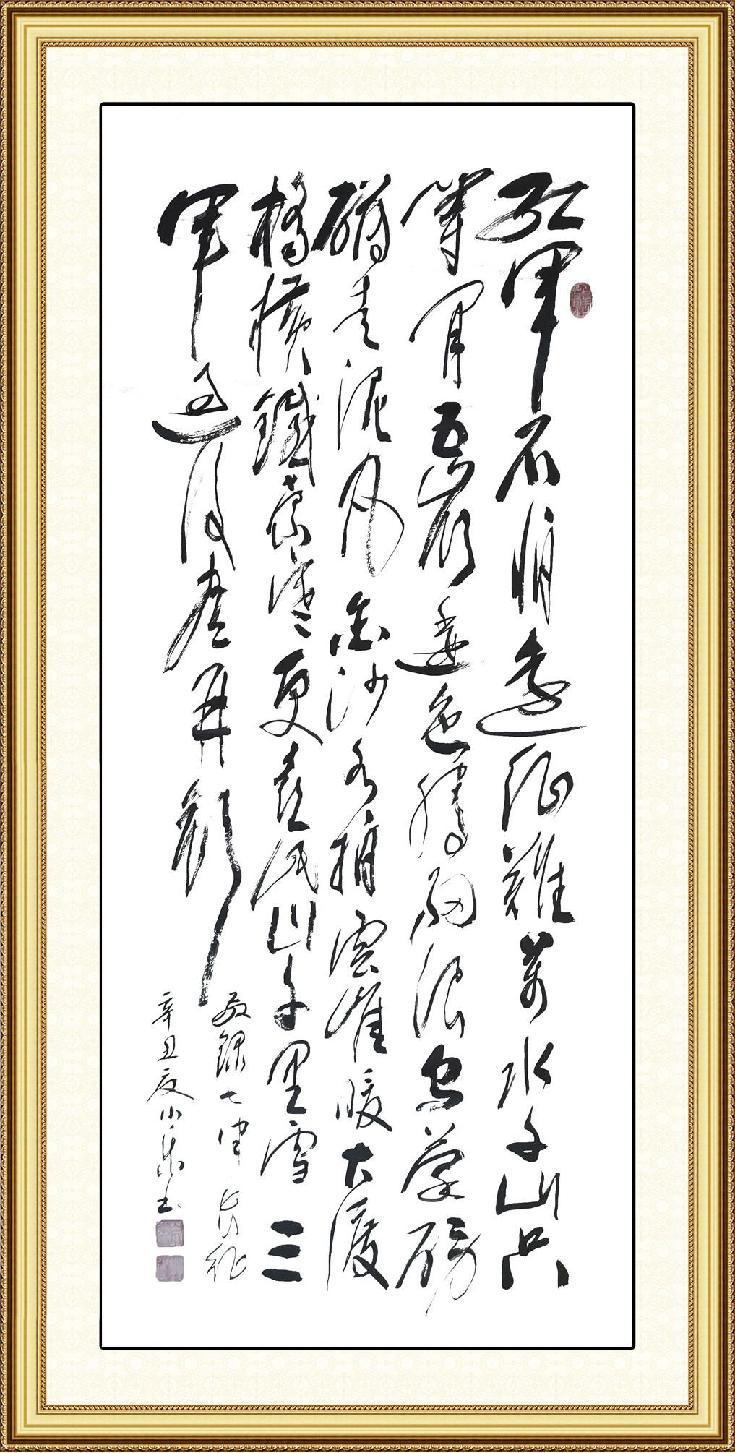 红军不怕远征难万水千山只
等闲五岭逶迤腾细浪乌蒙磅
礴走泥丸金沙水拍云崖暖大渡
桥横铁索寒更喜岷山千里雪三
军过后尽开颜
敬录七律长征
辛丑夏小乐书